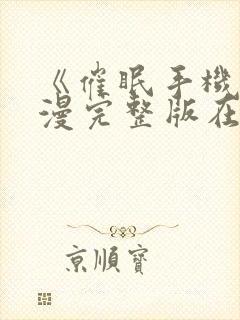 《催眠手機
漫完整版在
京順寶